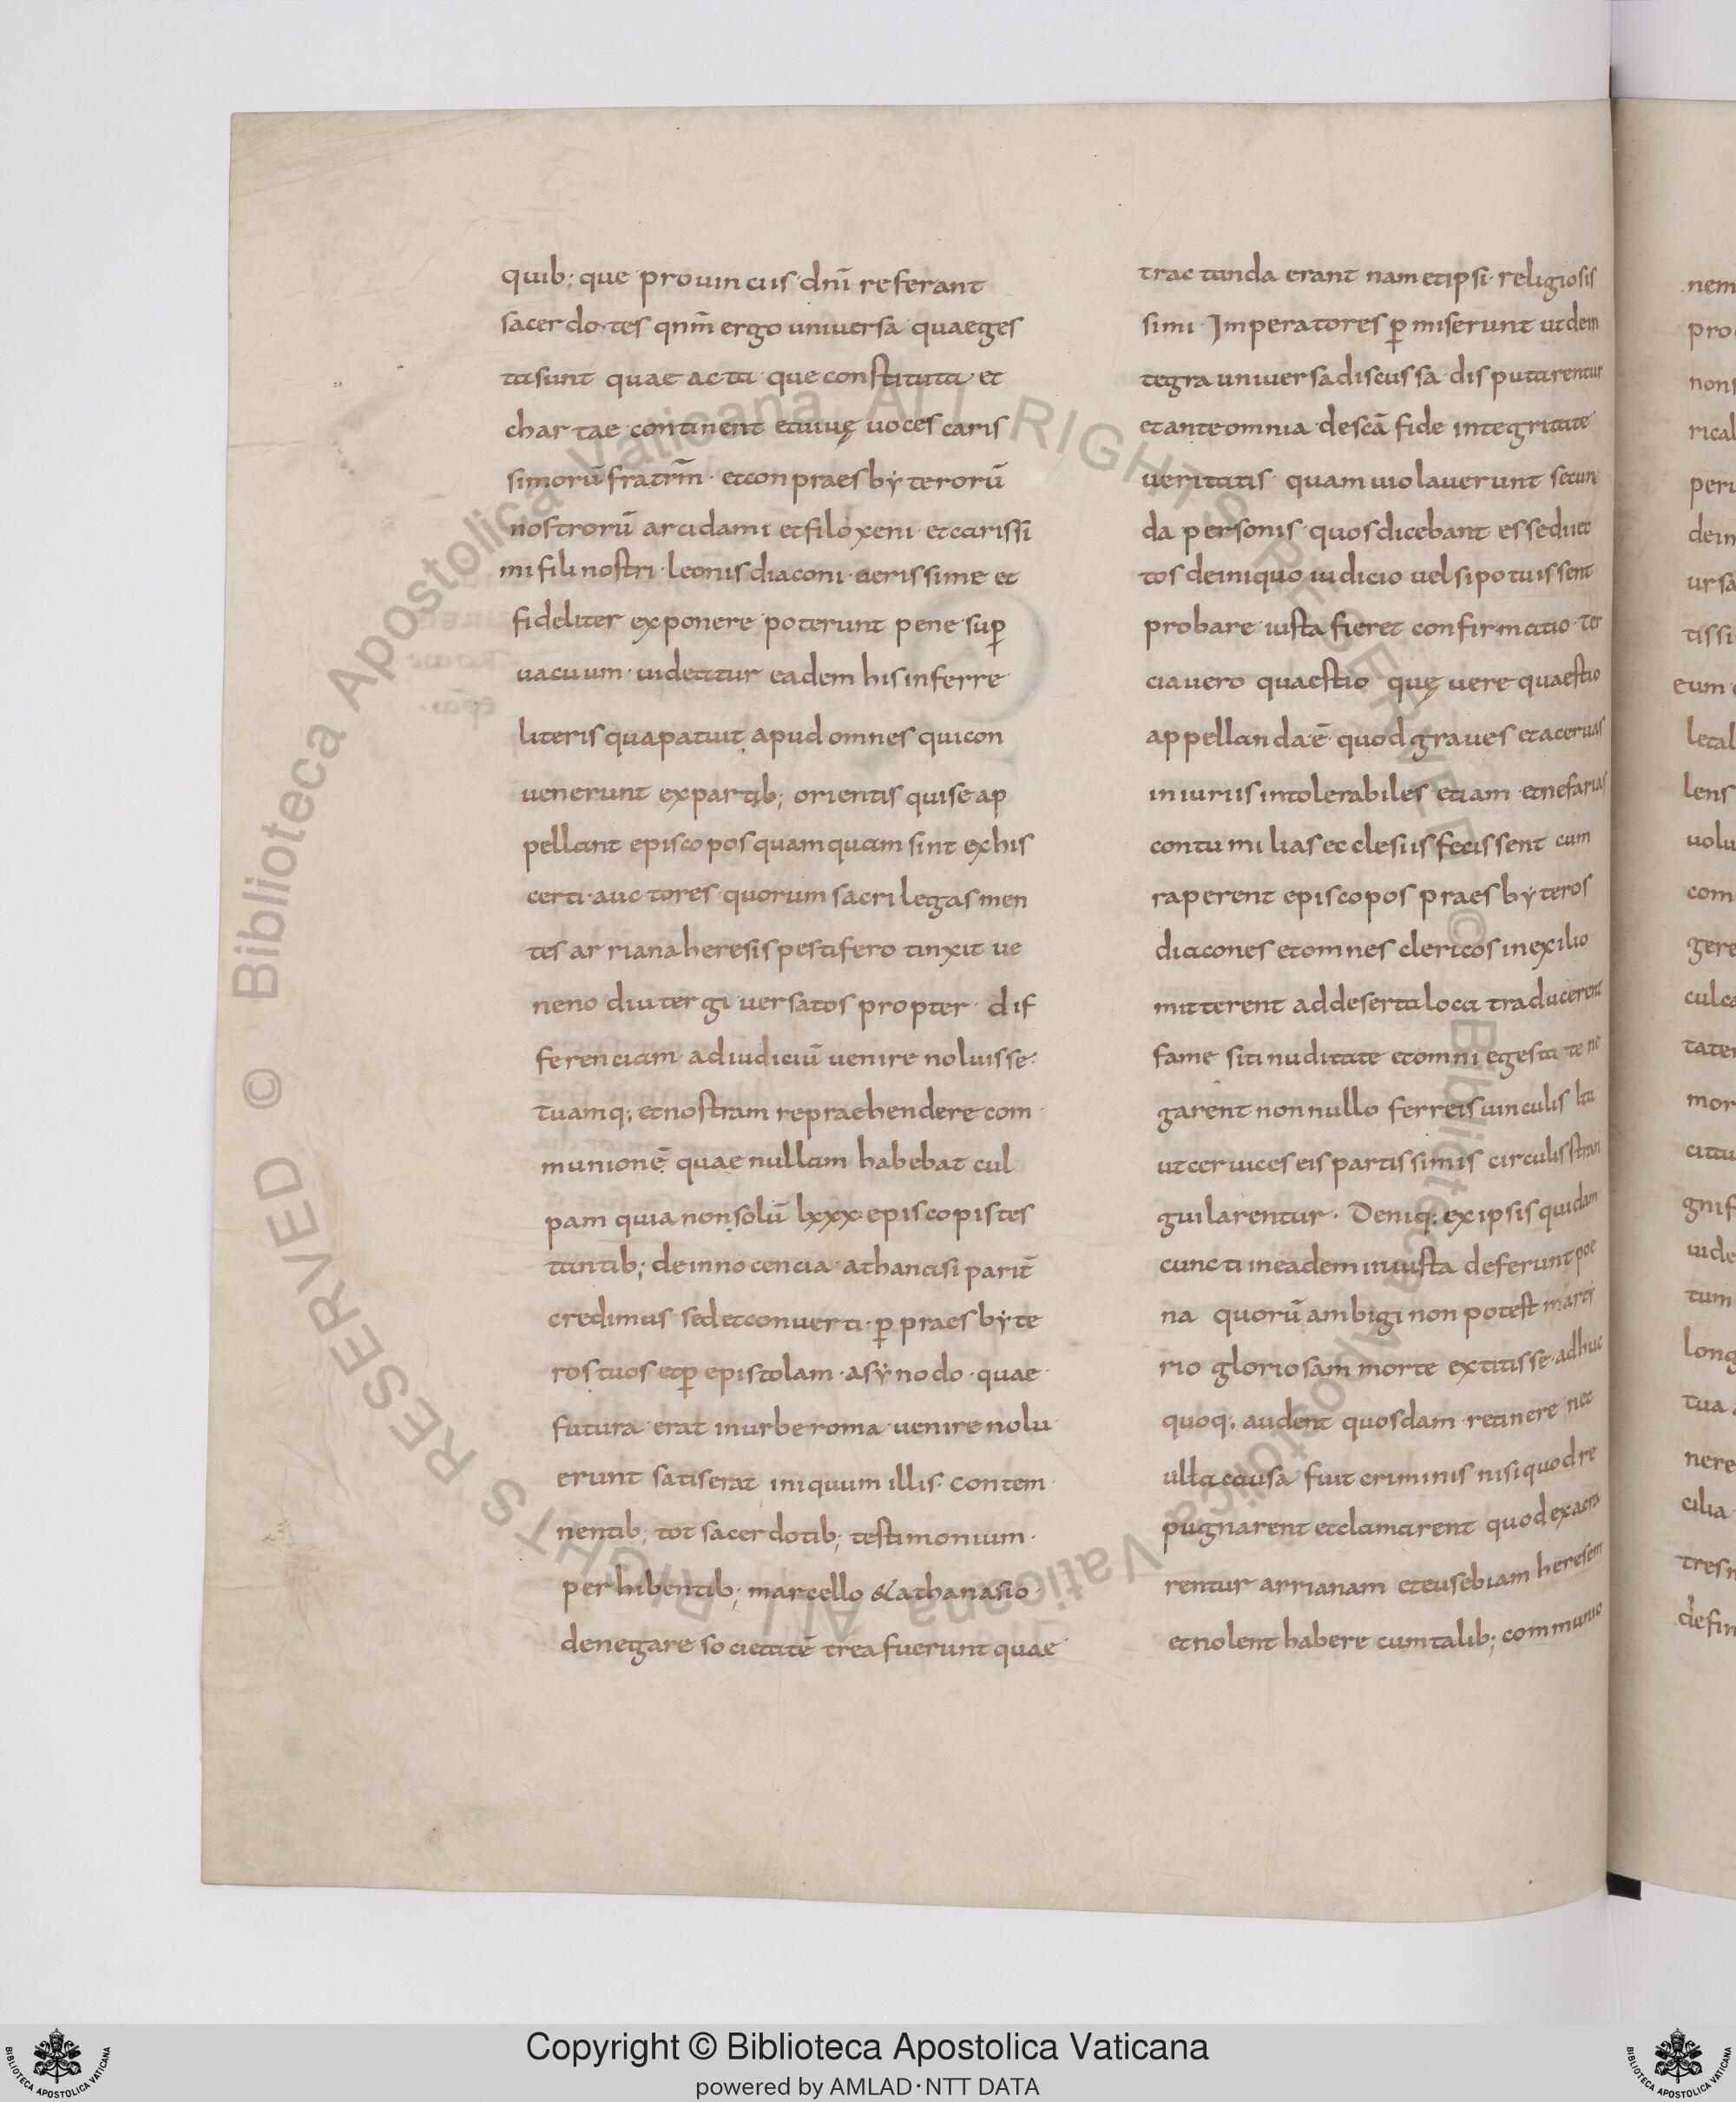 quib; que prouinciis dn̄i referant
sacerdotes qnm̄ ergo uniuersa quaeges
tasunt quae acta que constituta et
chartae continent etuiuę uoces caris
simorū fratrm̄ · etconpraesbyterorū
nostrorū arcidami etfiloxeni · etcarissi
mi fili nostri · leonis diaconi · uerissime et
fideliter exponere poterunt pene sup̱
uacuum · uidetatur eadem his inferre
literis quapatuit apud omnes quicon
uenerunt expartib; orientis quise ap
pellant episcopos quamquam sint exhis
certi · auctores quorum sacrilegas men
tes arriana heresis pestifero tinxit ue
neno diu tergiuersatos propter · dif
ferenciam adiudiciū uenire noluisse ·
tuamq; etnostram repraehendere com
munionē quae nullam habebat cul
pam quia nonsolū lxxx · episcopis tes
tantib; deinnocencia · athanasi parit̄
credimus sedetconuerti · p̱ praesbyte
ros tuos etp̱ epistolam · asynodo · quae
futura erat inurbe roma uenire nolu
erunt satiserat iniquum illis · contem
nentib; tot sacerdotib; testimonium ·
perhibentib; marcello & athanasio ·
denegare societatē trea fuerunt quae
tractanda erant nam etipsi · religiosis
simi · Imperatores p̱miserunt utdein
tegra uniuersa discussa disputarentur
etante omnia descā fide integritate
ueritatis quam uiolauerunt secun
da personis quos dicebant esse diiec
tos deiniquo iudicio uel si potuissent
probare iusta fieret confirmatio · ter
cia uero quaestio quę uere quaestio
appellanda ē quod graues etaceruas
iniuriis intolerabiles etiam etnefarias
contumilias ecclesiis fecissent cum
raperent episcopos praesbyteros
diacones etomnes clericos inexilio
mitterent addeserta loca traducerent
fame siti nuditate etomni egestate ne
garent nonnullo ferreis uinculis ita
utceruices eis partissimis circulis stran
guilarentur · Deniq; exipsis quidam
cuncti ineadem iniusta deferunt poe
na quorū ambigi non potest marty
rio gloriosam morte extitisse · adhuc
quoq; audent quosdam retinere nec
ulla causa fuit criminis nisi quod re
pugnarent etclamarent quod exacra
rentur arrianam eteusebiam heresem
etnolent habere cumtalib; communio
nem
pro
nons
rical
peri
dein
ursa
tissi
eum
letal
lens
uolu
com
gere
culca
tater
mor
citu
gnif
uide
tum
long
tua
nere
cilia
tres n
defin
© Biblioteca Apostolica Vaticana ALL RIGHTS RESERVED © Biblioteca Apostolica Vaticana ALL RIGHTS RESERVED
Copyright © Biblioteca Apostolica Vaticana
powered by AMLAD·NTT DATA
BIBLIOTECA APOSTOLICA VATICANA
BIBLIOTECA APOSTOLICA VATICANA